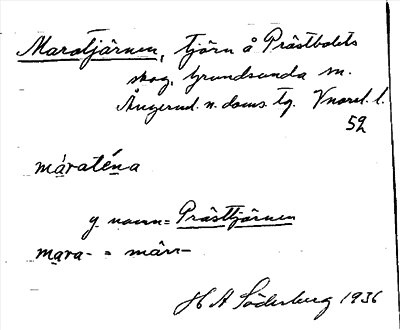 Maratjärnen, tjärn å Prästbolets
skog, Grundsunda sn.
Ångerml. n. doms. tg. Vnorrl. l.
52
máraténa
y. namn = Prästtjärnen
mara- = mårr-
H A Söderberg 1936